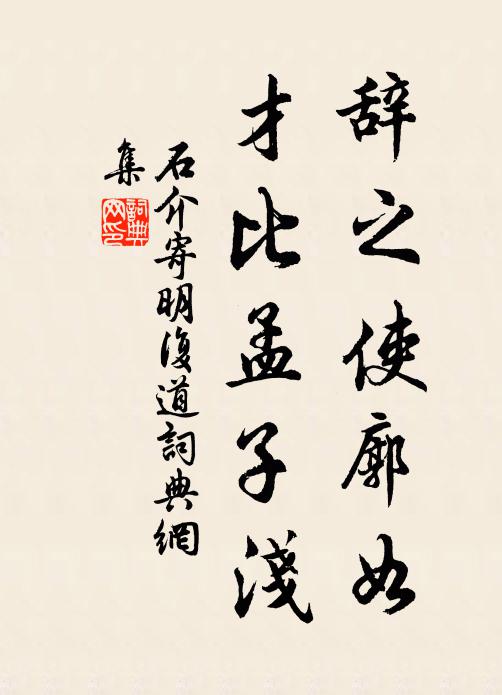 辞之使廓如
才比孟子淺
石介寄明復道詞典網
集
詞典
网印